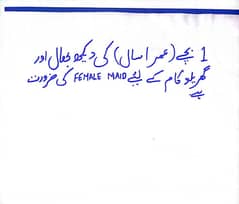 1 بچے (عمر 1 سال) کی دیکھ بھال اور
گھریلو کام کے لیے FEMALE MAID کی ضرورت
ہے